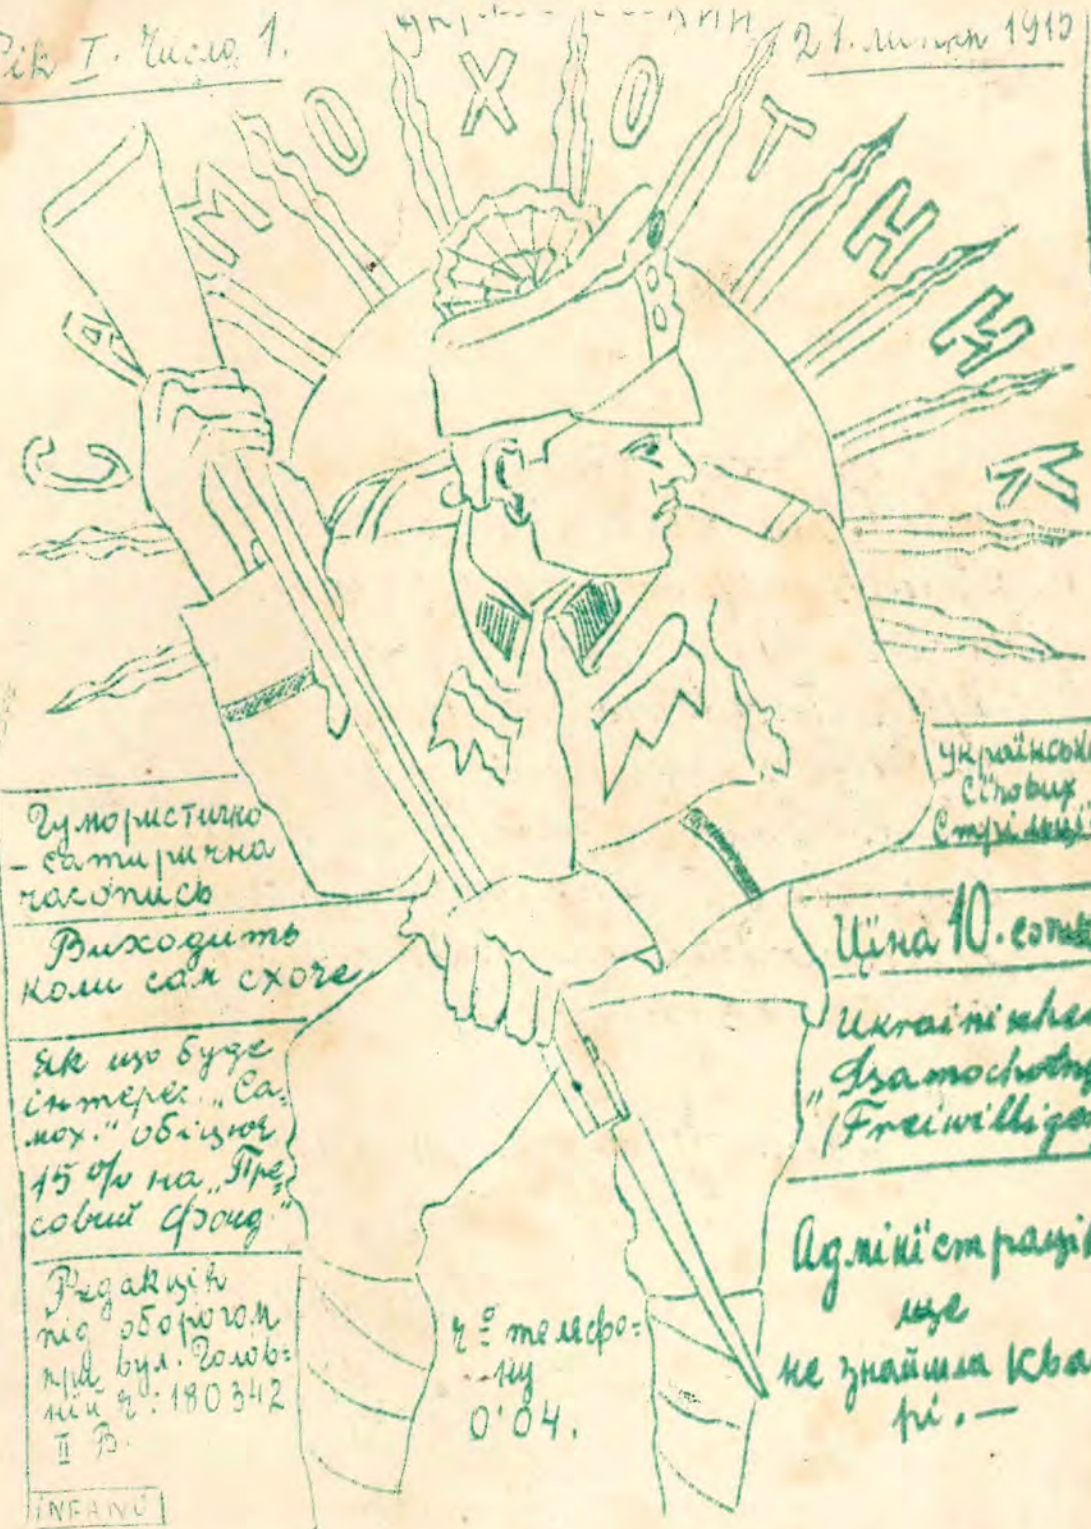 Рік I. Число 1.
21. липня 1915
САМОХОТНИК
Гумористично
- сатирична
часопись
Виходить
коли сам схоче
Як що буде
інтерес. „Са=
мох." обіцює
15 % на „Пре=
совий фонд."
Редакція
під оборогом
при вул. Голов=
ній ч: 180342
II В.
INFANŬ
ч о телефо=
ну
0'04.
українськ
Сїчових
Стрільців
Ціна 10. сот
Ukrainische
„Ssamochotny
(Freiwillige
Адмінїстрація
ще
не знайшла ква
рі. —